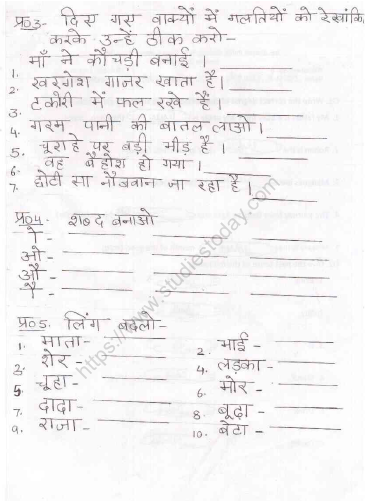 प्र03- दिस गस वाक्यों में गलतियों को रेखांकि
करके उन्हें ठीक करो-
1. माँ ने कौचड़ी बनाई ।
2. खरगेश गाजर खाता है।
3. टकोरी में फल रखे हैं।
4. गरम पानी की बातल लाओ।
5. चूराहे पर बड़ी भीड़ है।
6. वह बैहोश हो गया।
7. छोटी सा नौबवान जा रहा है।
प्र04- शब्द बनाओ
ो -
ओ -
औ -
ौ -
प्र05. लिंग बदलो-
1. माता- 2. भाई -
3. शेर- 4. लड़का-
5 चूहा- 6. मोर-
7. दादा- 8. बूढ़ा-
9. राजा- 10. बेटा -
https://www.studiestoday.com